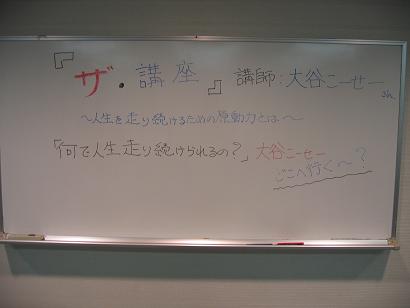 『ザ・講座』 講師:大谷こーせーさん
～人生を走り続けるための原動力とは～
「何で人生走り続けられるの？」大谷こーせー
どこへ行く～？